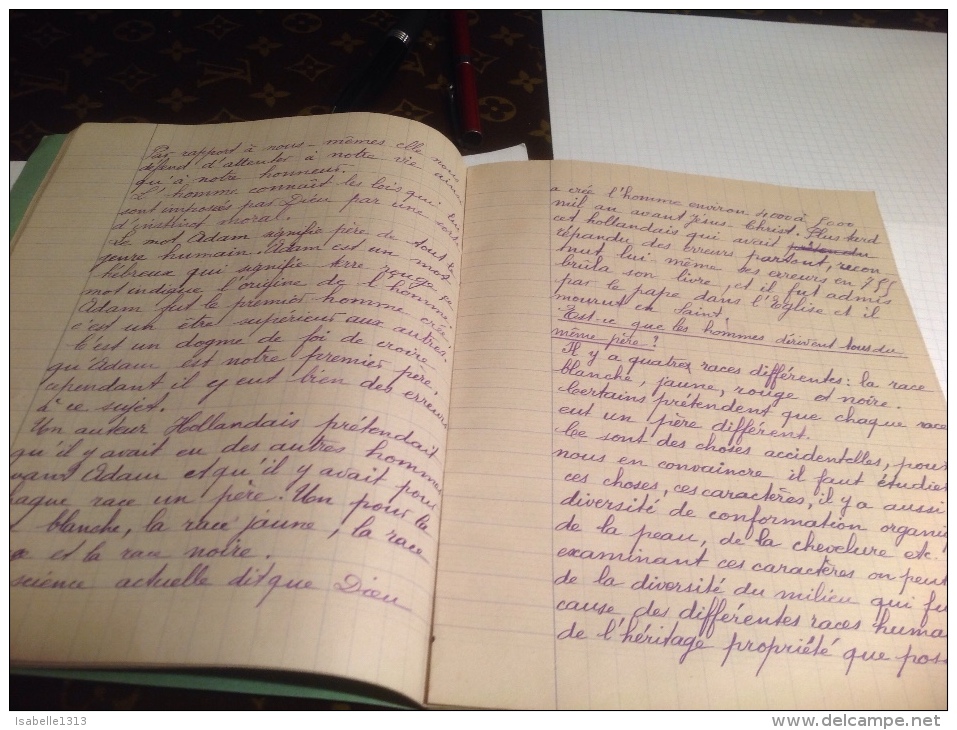 Par rapport à nous-mêmes elle nous
défend d'attenter à notre vie ainsi
qu'à notre honneur.
L'homme connaît les lois qui lui
sont imposées par Dieu par une sorte
d'instinct moral.
Le mot Adam signifie père de tout le
genre humain. Adam est un mot
hébreux qui signifie terre rouge ce
mot indique l'origine de l'homme.
Adam fut le premier homme créé,
c'est un être supérieur aux autres.
C'est un dogme de foi de croire
qu'Adam est notre premier père,
cependant il y eut bien des erreurs
à ce sujet.
Un auteur Hollandais prétendait
qu'il y avait eu des autres hommes
vant Adam et qu'il y avait pour
haque race un père. Un pour la
blanche, la race jaune, la race
et la race noire.
science actuelle dit que Dieu
a crée l'homme environ 4000 à 5000
mil an avant Jésus-Christ. Plus tard
cet hollandais qui avait
répandu des erreurs partout, recon
nut lui même ses erreurs en
brûla son livre, et il fut admis
par le pape dans l'Eglise et il
mourut en Saint.
Est-ce que les hommes dérivent tous du
même père?
Il y a quatres races différentes: la race
blanche, jaune, rouge et noire.
Certains prétendent que chaque race
eut un père différent.
Ce sont des choses accidentelles, pour
nous en convaincre il faut étudier
ces choses, ces caractères, il y a aussi
diversité de conformation organi
de la peau, de la chevelure etc.
examinant ces caractères on peut
de la diversité du milieu qui fu
cause des différentes races huma
de l'héritage propriété que poss
Isabelle1313
www.delcampe.net